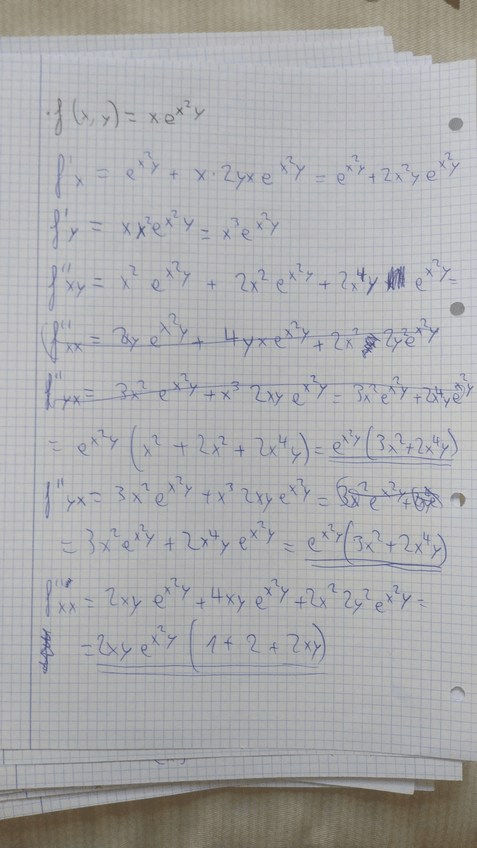 · f(x, y) = x e^{x²y}
f'x = e^{x²y} + x · 2yx e^{x²y} = e^{x²y} + 2x²y e^{x²y}
f'y = x x² e^{x²y} = x³ e^{x²y}
f''xy = x² e^{x²y} + 2x² e^{x²y} + 2x⁴y e^{x²y} =
f''xx = 2y e^{x²y} + 4yx e^{x²y} + 2x² 2y² e^{x²y}
f''yx = 3x² e^{x²y} + x³ 2xy e^{x²y} = 3x² e^{x²y} + 2x⁴y e^{x²y}
= e^{x²y} (x² + 2x² + 2x⁴y) = e^{x²y} (3x² + 2x⁴y)
f''yx = 3x² e^{x²y} + x³ 2xy e^{x²y} =
= 3x² e^{x²y} + 2x⁴y e^{x²y} = e^{x²y} (3x² + 2x⁴y)
f''xx = 2xy e^{x²y} + 4xy e^{x²y} + 2x² 2y² e^{x²y} =
= 2xy e^{x²y} (1 + 2 + 2xy)